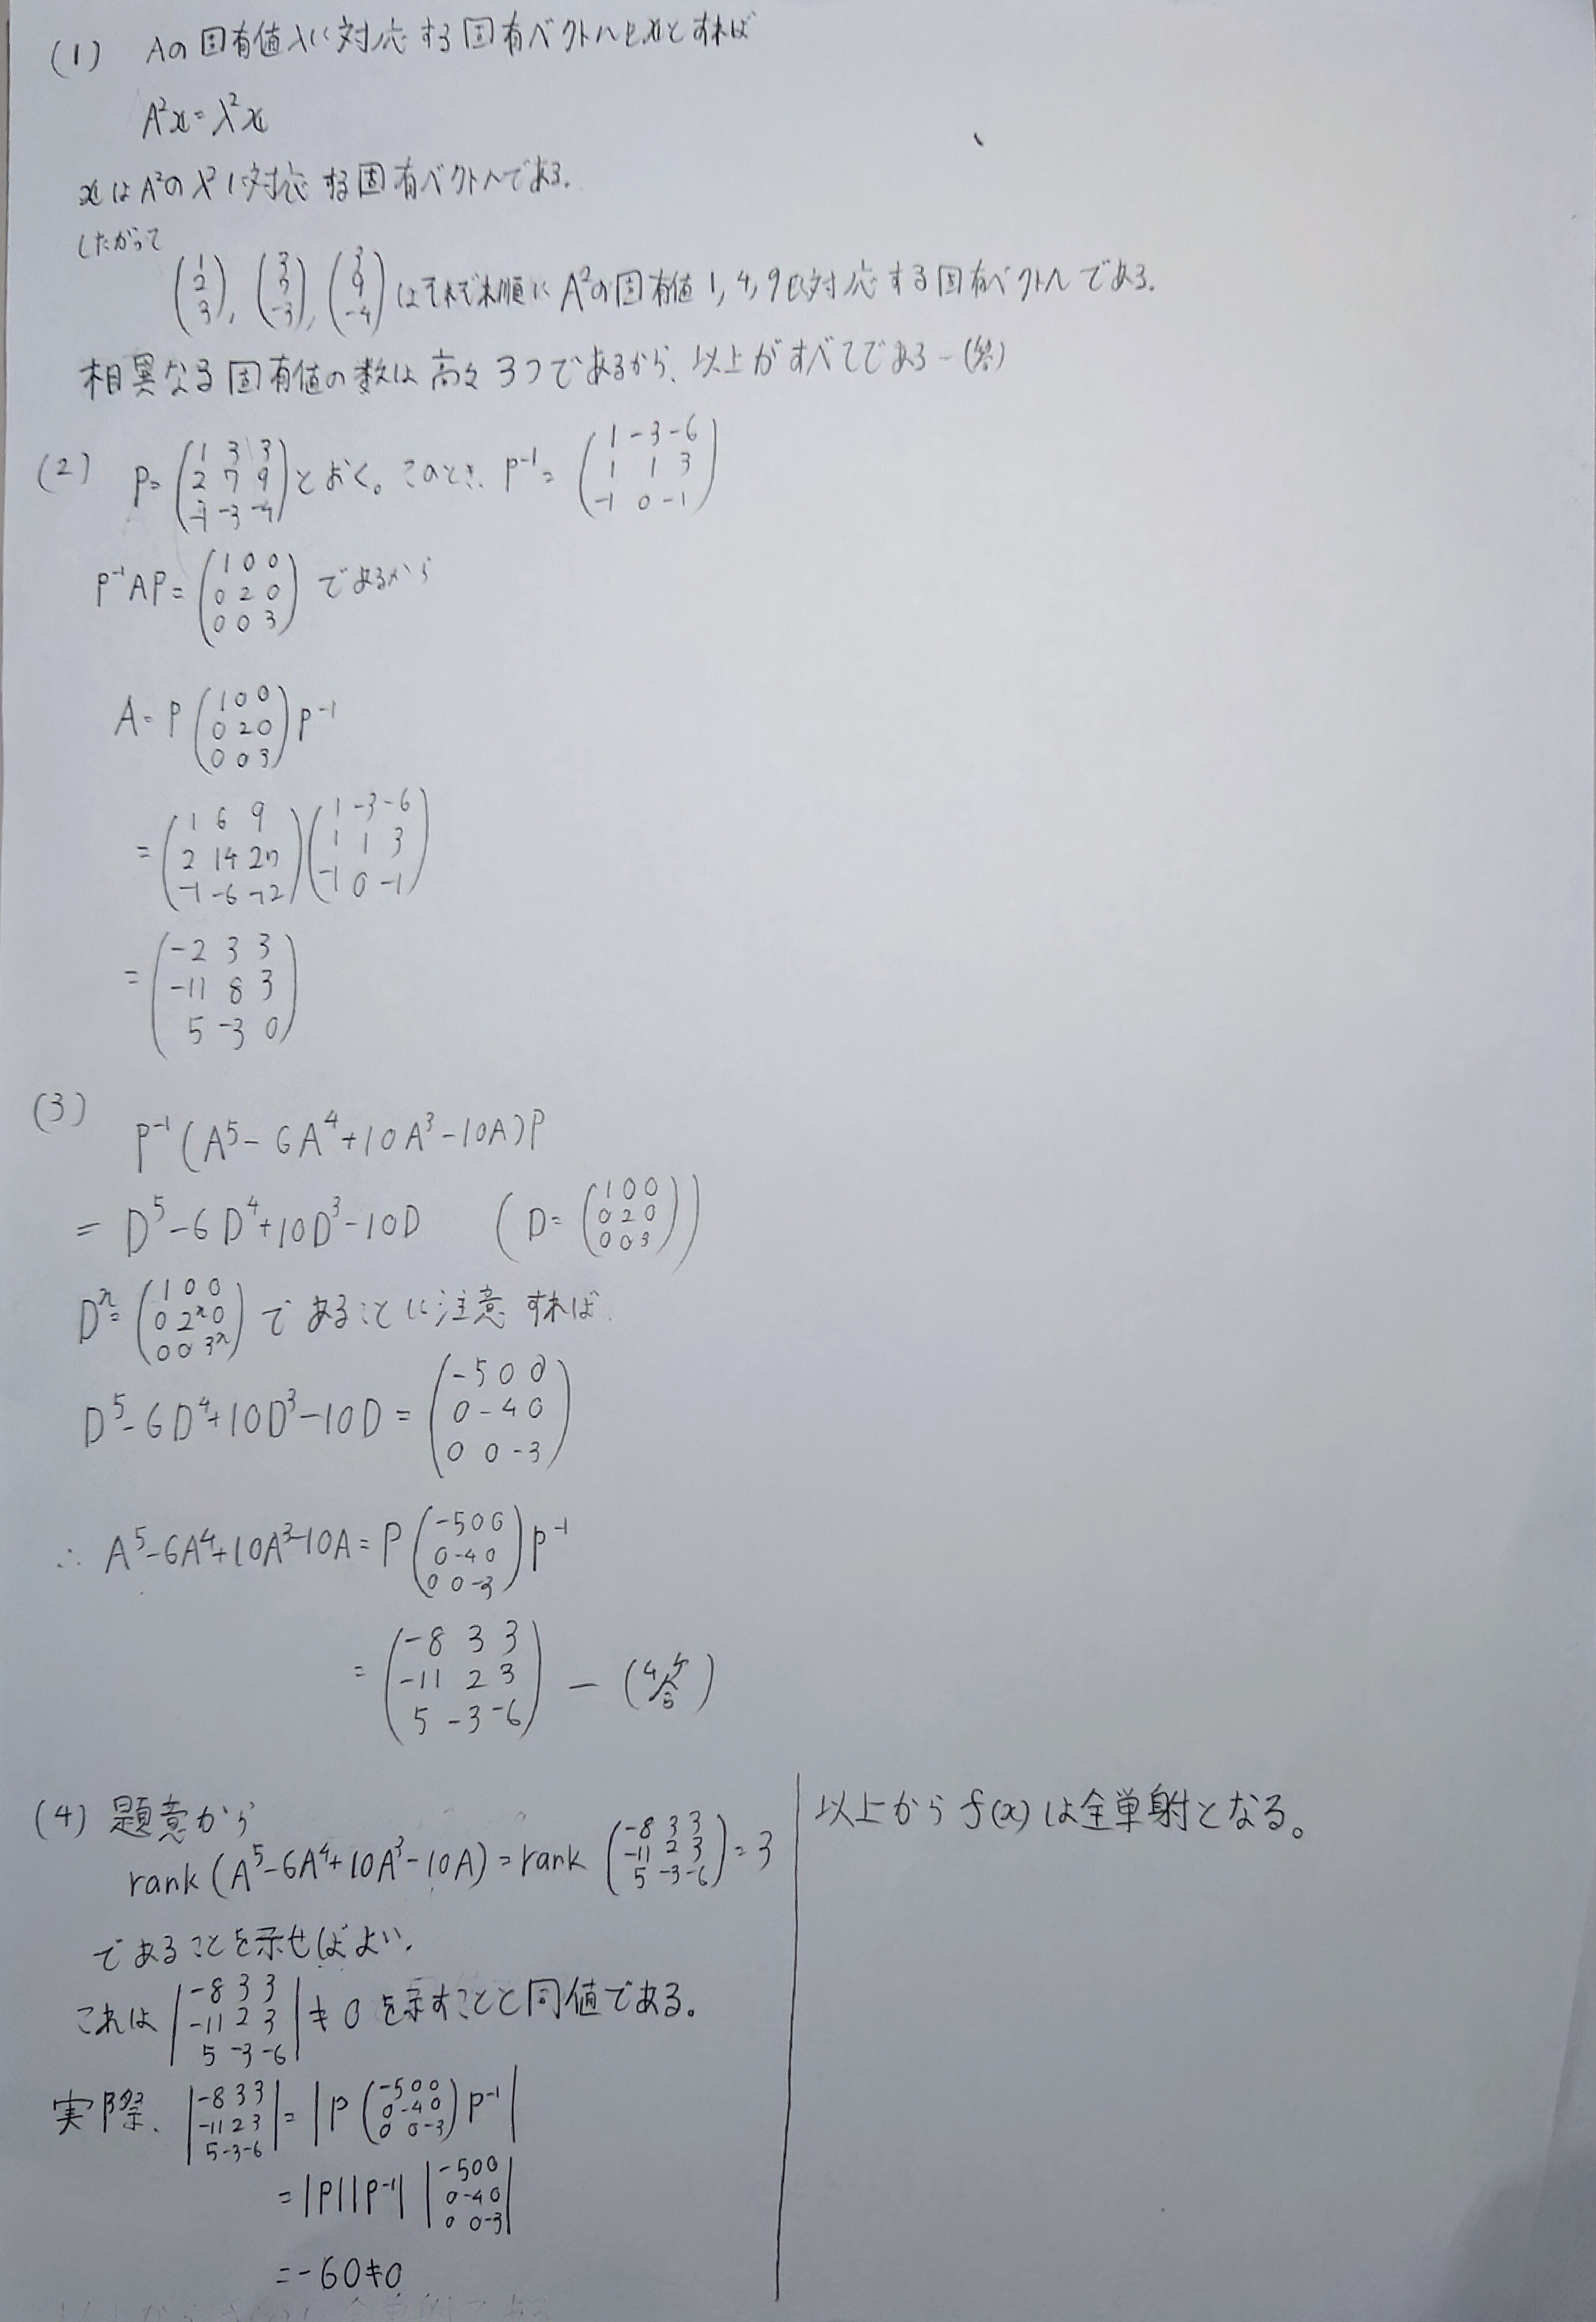 (1) Aの固有値λに対応する固有ベクトルをxとすれば
A²x=λ²x
xはA²のλ²に対応する固有ベクトルである.
したがって
(1 2 3), (3 7 -3), (3 9 -4) はそれぞれ順に A²の固有値 1, 4, 9に対応する固有ベクトルである.
相異なる固有値の数は高々3つであるから、以上がすべてである-(答)
(2) P= (1 3 3 / 2 7 9 / -1 -3 -4) とおく。このとき. P⁻¹= (1 -3 -6 / 1 1 3 / -1 0 -1)
P⁻¹AP= (1 0 0 / 0 2 0 / 0 0 3) であるから
A= P (1 0 0 / 0 2 0 / 0 0 3) P⁻¹
= (1 6 9 / 2 14 27 / -1 -6 -12) (1 -3 -6 / 1 1 3 / -1 0 -1)
= (-2 3 3 / -11 8 3 / 5 -3 0)
(3) P⁻¹(A⁵-6A⁴+10A³-10A)P
= D⁵-6D⁴+10D³-10D (D= (1 0 0 / 0 2 0 / 0 0 3))
Dⁿ= (1 0 0 / 0 2ⁿ 0 / 0 0 3ⁿ) であることに注意すれば
D⁵-6D⁴+10D³-10D = (-5 0 0 / 0 -4 0 / 0 0 -3)
∴ A⁵-6A⁴+10A³-10A = P (-5 0 0 / 0 -4 0 / 0 0 -3) P⁻¹
= (-8 3 3 / -11 2 3 / 5 -3 -6) - (答)
(4) 題意から
rank (A⁵-6A⁴+10A³-10A) = rank (-8 3 3 / -11 2 3 / 5 -3 -6) = 3
であることを示せばよい.
これは |-8 3 3 / -11 2 3 / 5 -3 -6| ≠ 0 を示すことと同値である。
実際. |-8 3 3 / -11 2 3 / 5 -3 -6| = |P (-5 0 0 / 0 -4 0 / 0 0 -3) P⁻¹|
= |P||P⁻¹| |-5 0 0 / 0 -4 0 / 0 0 -3|
= -60≠0
以上から f(x) は全単射となる。